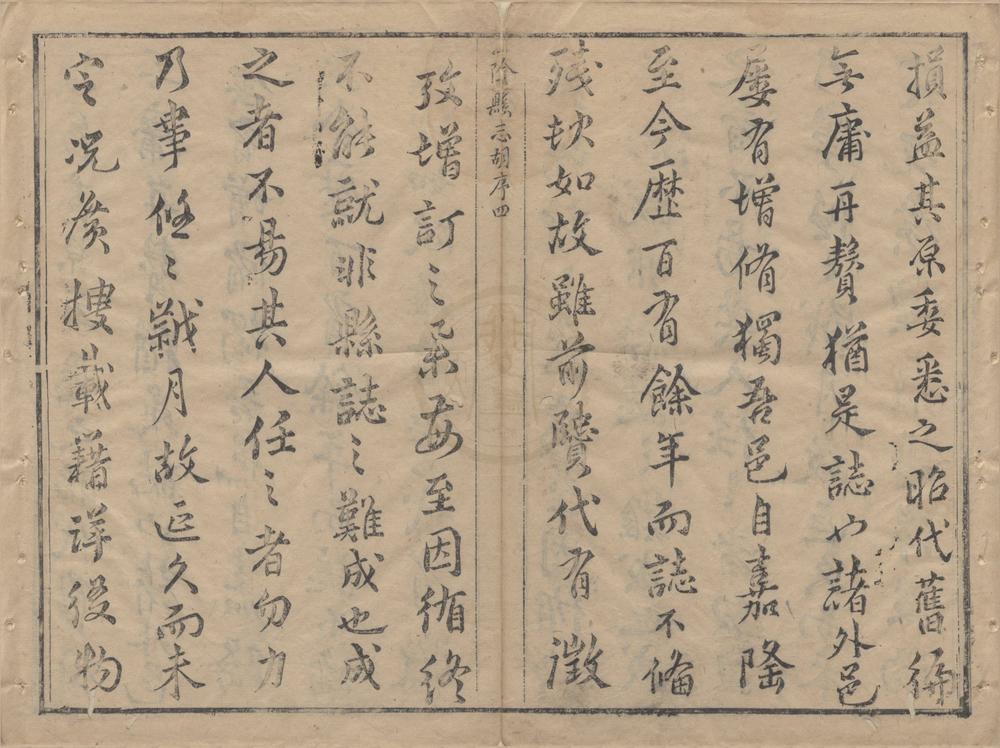 損益其原委悉之昭代舊編
無庸再贅猶是誌也諸外邑
屢有增脩獨吾邑自嘉隆
至今歷百有餘年而誌不脩
殘缺如故雖前賢代有徵
縣志胡序四
攷增訂之舉每至因循終
不能就非縣誌之難成也成
之者不易其人任之者勿力
乃事任之月故延久而未
定况廣搜載籍詳後物